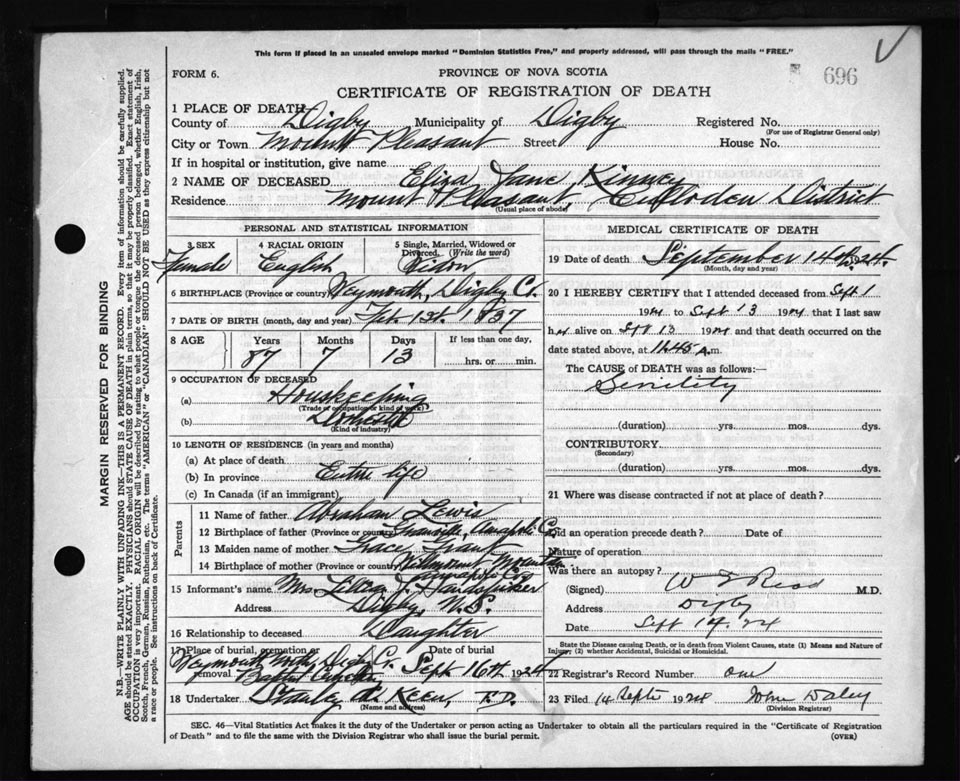 This form if placed in an unsealed envelope marked "Dominion Statistics Free," and properly addressed, will pass through the mails "FREE."
FORM 6.
PROVINCE OF NOVA SCOTIA
696
CERTIFICATE OF REGISTRATION OF DEATH
1 PLACE OF DEATH
County of Digby Municipality of Digby Registered No.
(For use of Registrar General only)
City or Town Mount Pleasant Street House No.
If in hospital or institution, give name
2 NAME OF DECEASED Eliza Jane Kinney
Residence Mount Pleasant, Culloden District
(Usual place of abode)
PERSONAL AND STATISTICAL INFORMATION
3 SEX 4 RACIAL ORIGIN 5 Single, Married, Widowed or Divorced. (Write the word)
Female English
6 BIRTHPLACE (Province or country) Weymouth, Digby Co.
7 DATE OF BIRTH (month, day and year) Feb. 1st. 1837
8 AGE Years Months Days If less than one day,
87 7 13 hrs. or min.
9 OCCUPATION OF DECEASED
(a) Housekeeping
(Trade or occupation or kind of work)
(b) Domestic
(Kind of industry)
10 LENGTH OF RESIDENCE (in years and months)
(a) At place of death
(b) In province Entire life
(c) In Canada (if an immigrant)
Parents
11 Name of father Abraham Lewis
12 Birthplace of father (Province or country) Annapolis Co.
13 Maiden name of mother Grace
14 Birthplace of mother (Province or country) Mountain
Annapolis Co.
15 Informant's name Mrs Lillian J. Handspiker
Address Digby, N.S.
16 Relationship to deceased Daughter
17 Place of burial, cremation or removal Date of burial
Weymouth North, Digby Co. Sept 16th 1924
Baptist Cemetery
18 Undertaker Stanley A. Keen, F.D.
(Name and address)
MEDICAL CERTIFICATE OF DEATH
19 Date of death September 14th 24.
(Month, day and year)
20 I HEREBY CERTIFY that I attended deceased from Sept 1
1924 to Sept 13 1924 that I last saw
her alive on Sept 13 1924 and that death occurred on
date stated above, at A.m.
The CAUSE of DEATH was as follows:—
Senility
(duration) yrs. mos. dys.
CONTRIBUTORY.
(Secondary)
(duration) yrs. mos. dys.
21 Where was disease contracted if not at place of death?
Did an operation precede death? Date of
Nature of operation
Was there an autopsy?
(Signed) M.D.
Address Digby
Date Sept 14. 24
State the Disease causing Death, or in death from Violent Causes, state (1) Means and Nature of Injury; (2) whether Accidental, Suicidal or Homicidal.
22 Registrar's Record Number one
23 Filed 14 Sept 1924 John Daley
(Division Registrar)
SEC. 46—Vital Statistics Act makes it the duty of the Undertaker or person acting as Undertaker to obtain all the particulars required in the "Certificate of Registration
of Death" and to file the same with the Division Registrar who shall issue the burial permit. (OVER)
MARGIN RESERVED FOR BINDING
N.B.—WRITE PLAINLY WITH UNFADING INK—THIS IS A PERMANENT RECORD. Every item of information should be carefully supplied.
AGE should be stated EXACTLY. PHYSICIANS should STATE CAUSE OF DEATH in plain terms, so that it may be properly classified. Exact statement of
OCCUPATION is very important. RACIAL ORIGIN will be described by stating to what people or tongue the deceased person belonged, whether English, Irish,
Scotch, French, German, Russian, Ruthenian, etc. The terms "AMERICAN" or "CANADIAN" SHOULD NOT BE USED as they express citizenship but not
a race or people. See instructions on back of Certificate.